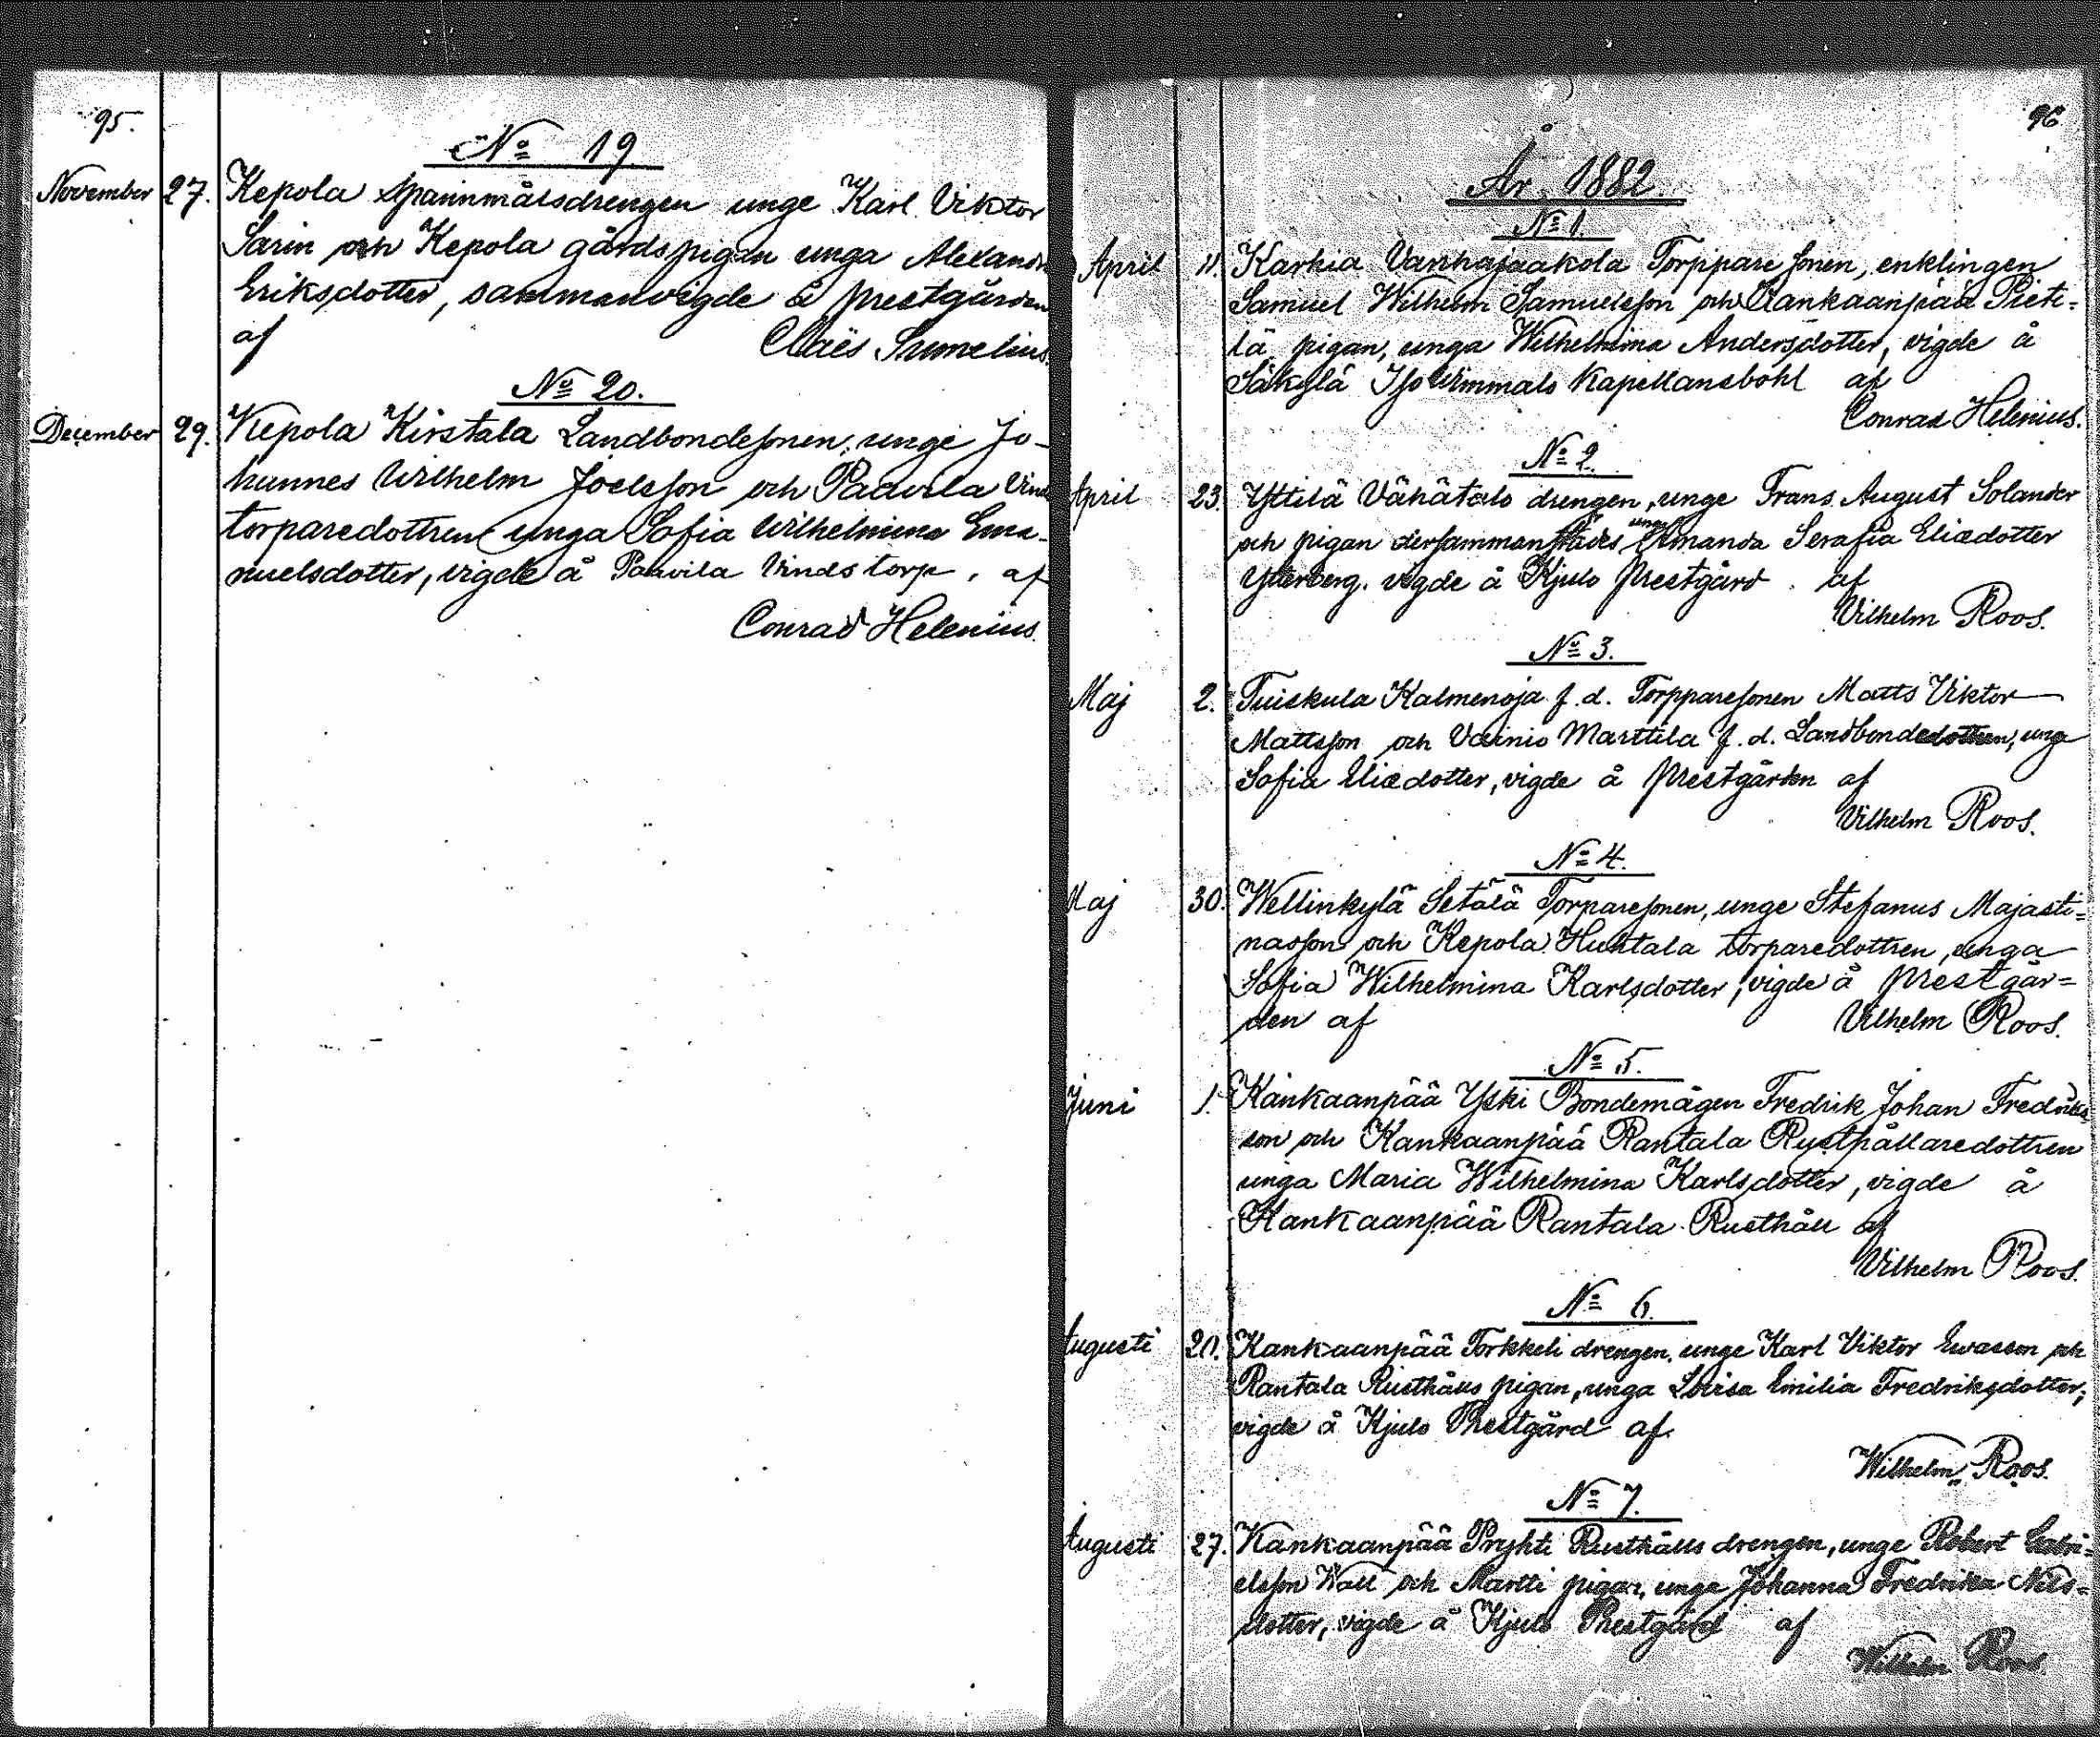 95.
No 19
November 27. Kepola spannmålsdrengen unge Karl Viktor
Sarin och Kepola gårdspigan unga Alexandra
Eriksdotter, sammanvigde å prestgården
af Claës Sumelius.
No 20.
December 29. Kepola Kirstala Landbondesonen, unge Jo-
hannes Wilhelm Joelsson och Paavila Vinds
torparedottren unga Sofia Wilhelmina Ema-
nuelsdotter, vigde å Paavila Vindstorp, af
Conrad Helenius.
96
År 1882.
No 1.
April 11. Karhia Vanhajaakola Torppare sonen, enklingen
Samuel Wilhelm Samuelsson och Kankaanpää Pieti=
lä pigan, unga Wilhelmina Andersdotter, vigde å
Säkylä Iso Uimmalo Kapellansbohl af
Conrad Helenius.
No 2.
April 23. Yttilä Vähätalo drengen, unge Frans August Solander
och pigan dersammanstädes unga Amanda Serafia Eliædotter
Ytterberg. vigde å Kjulo Prestgård. af
Vilhelm Roos.
No 3.
Maj 2. Tuiskula Kalmenoja f.d. Torpparesonen Matts Viktor
Mattsson och Vainio Marttila f.d. Landbondedottren, unga
Sofia Eliædotter, vigde å Prestgården af
Vilhelm Roos.
No 4.
Maj 30. Wellinkylä Setälä Torparesonen, unge Stefanus Majasti=
nasson och Kepola Huhtala torparedottren, unga
Sofia Wilhelmina Karlsdotter, vigde å Prestgår=
den af Vilhelm Roos.
No 5.
Juni 1. Kankaanpää Yski Bondemågen Fredrik Johan Fredriks
son och Kankaanpää Rantala Rusthållaredottren
unga Maria Wilhelmina Karlsdotter, vigde å
Kankaanpää Rantala Rusthåll af
Vilhelm Roos.
No 6.
Augusti 20. Kankaanpää Torkkeli drengen, unge Karl Viktor Evasson och
Rantala Rusthålls pigan, unga Lovisa Emilia Fredriksdotter,
vigde å Kjulo Prestgård af
Wilhelm Roos.
No 7.
Augusti 27. Kankaanpää Pryhti Rusthålls drengen, unge Robert Gabri=
elsson Wall och Martti pigan, unga Johanna Fredrika Nils=
dotter, vigde å Kjulo Prestgård af
Wilhelm Roos.